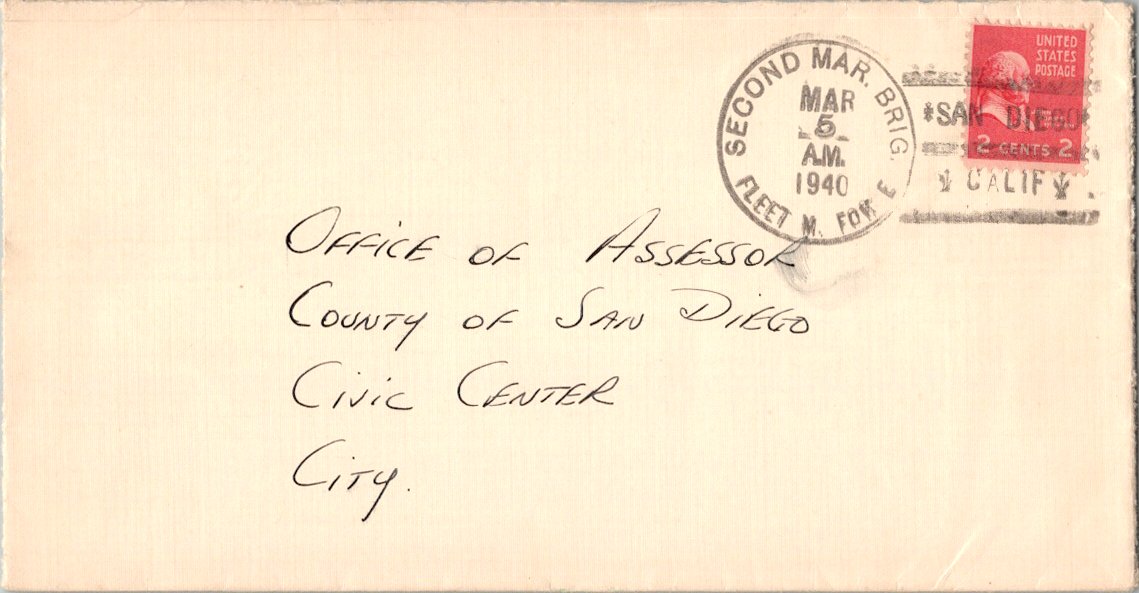 SECOND MAR. BRIG.
MAR
5
A.M.
1940
FLEET M. FOR E
UNITED
STATES
POSTAGE
2 CENTS 2
SAN DIEGO
CALIF
Office of Assessor
County of San Diego
Civic Center
City.